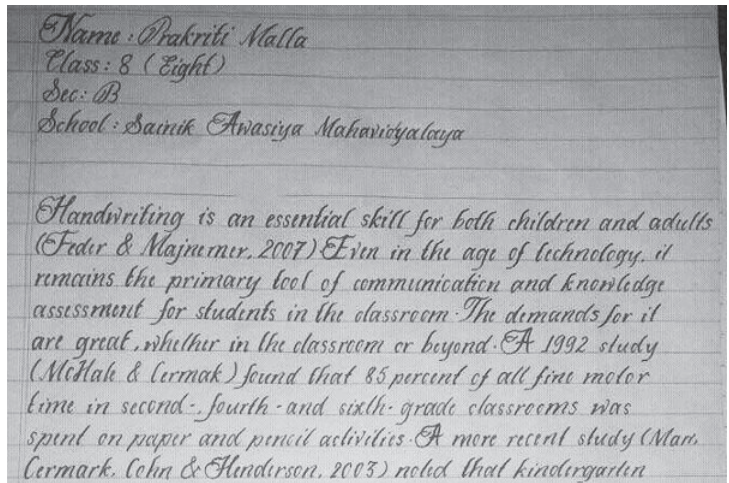 Name : Prakriti Malla
Class : 8 ( Eight )
Sec : B
School : Sainik Awasiya Mahavidyalaya
Handwriting is an essential skill for both children and adults
(Feder & Majnemer, 2007) Even in the age of technology, it
remains the primary tool of communication and knowledge
assessment for students in the classroom. The demands for it
are great, whether in the classroom or beyond. A 1992 study
(McHale & Cermak) found that 85 percent of all fine motor
time in second-, fourth-and sixth-grade classrooms was
spent on paper and pencil activities. A more recent study (Marr,
Cermark, Cohn & Henderson, 2003) noted that kindergarten